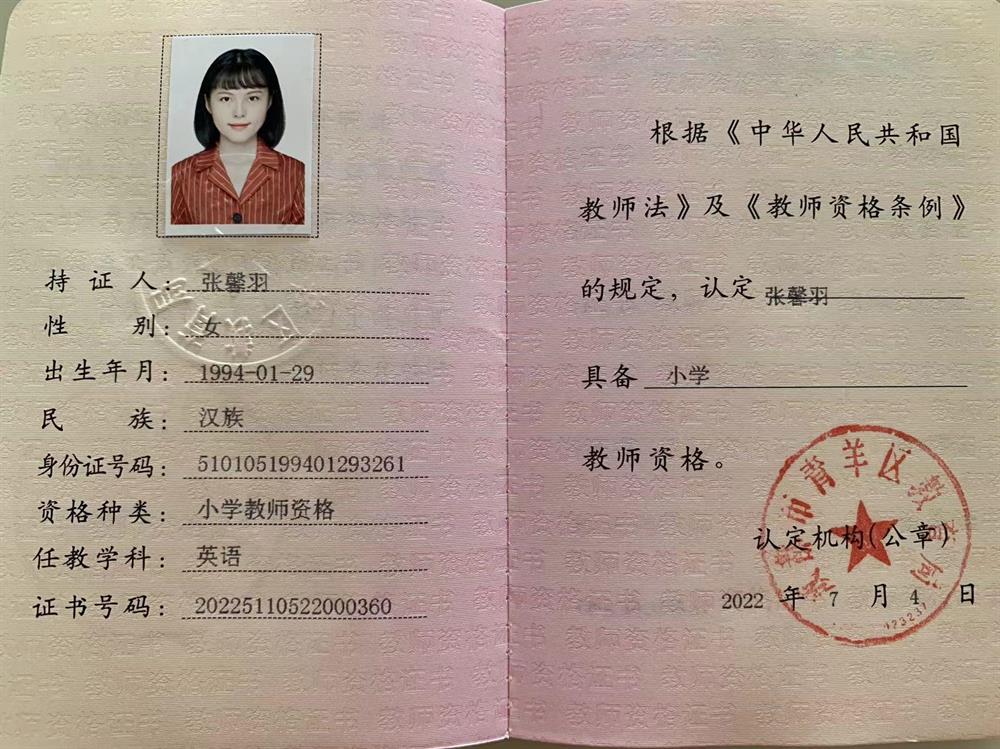 持证人：张馨羽
性别：女
出生年月：1994-01-29
民族：汉族
身份证号码：510105199401293261
资格种类：小学教师资格
任教学科：英语
证书号码：20225110522000360
根据《中华人民共和国
教师法》及《教师资格条例》
的规定，认定张馨羽
具备 小学
教师资格。
市青羊区教育局
认定机构（公章）
2022 年 7 月 4 日